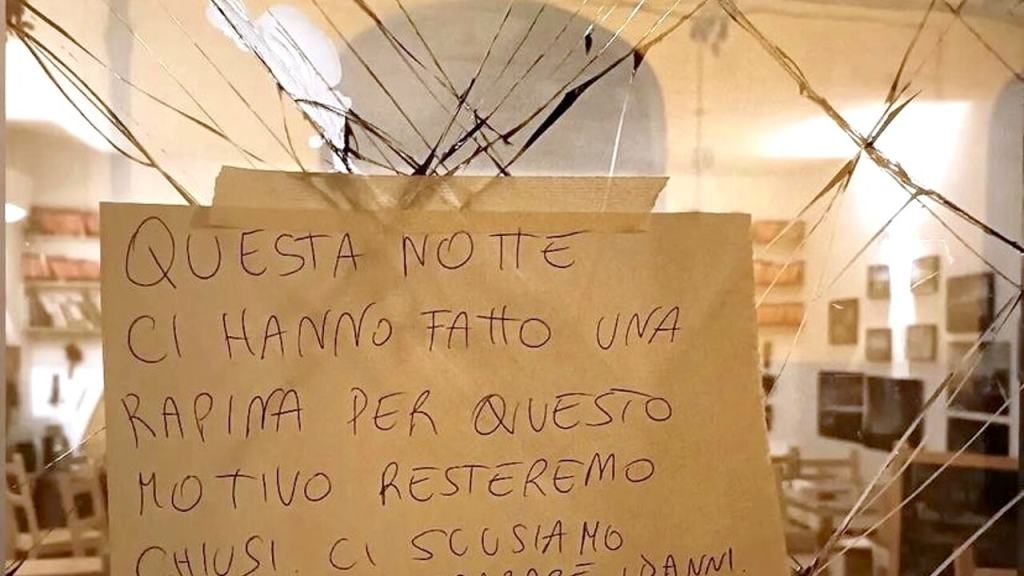 QUESTA NOTTE
CI HANNO FATTO UNA
RAPINA PER QUESTO
MOTIVO RESTEREMO
CHIUSI. CI SCUSIAMO
I DANNI.